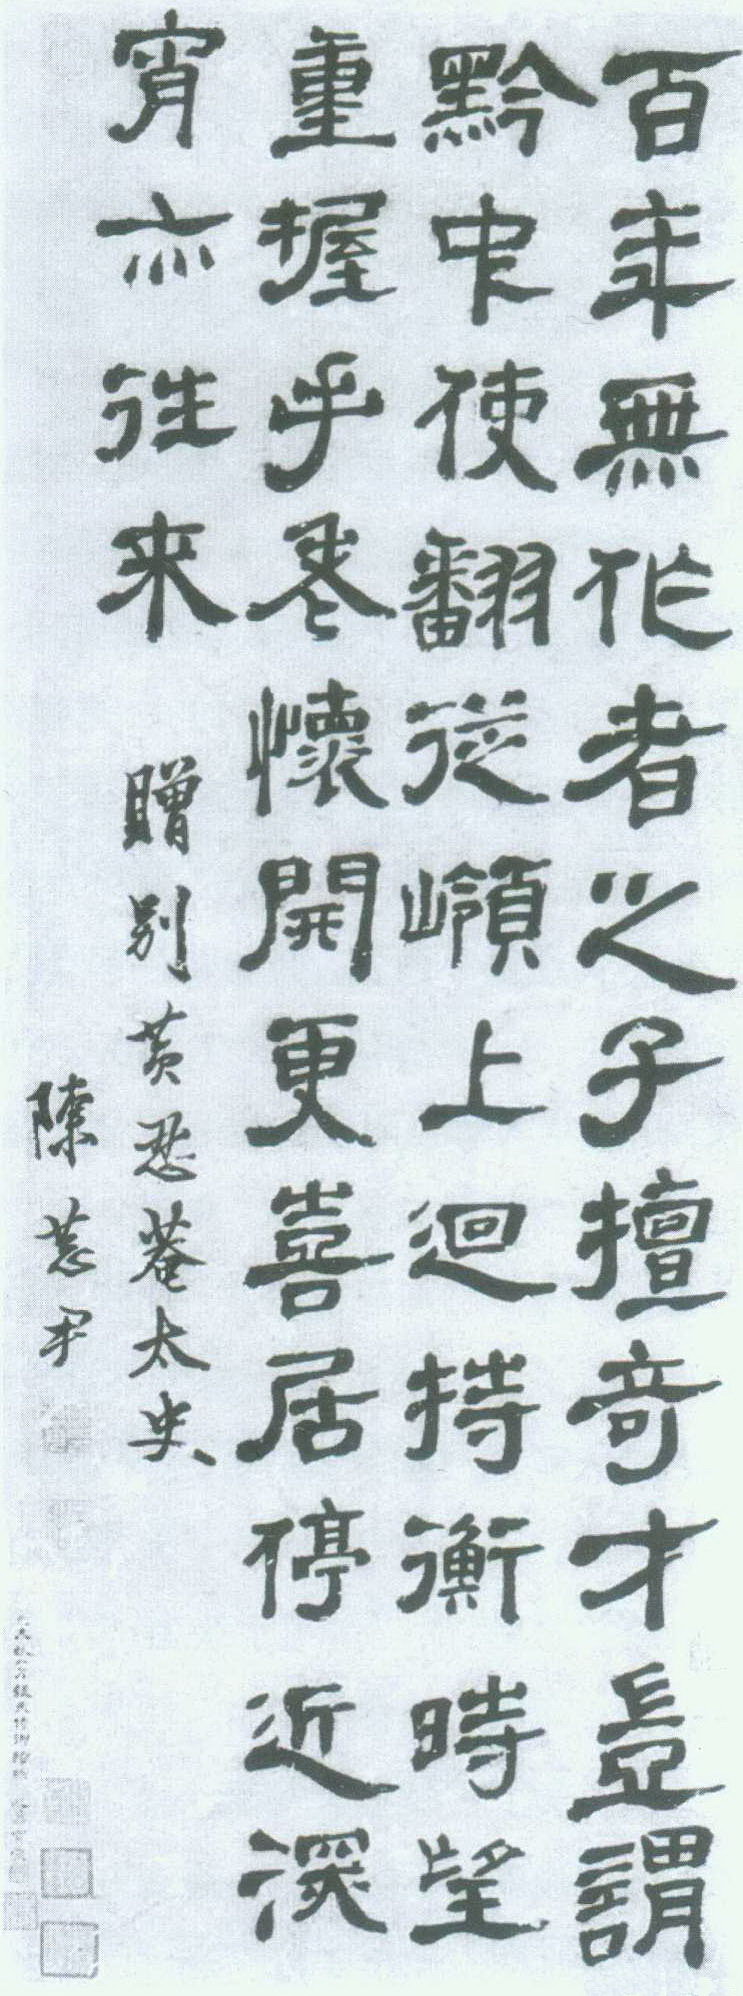 百年無作者之子擅奇才豈謂
黔中使翻從嶺上迴持衡時望
重握手卷懷開更喜居停近深
宵亦往来
贈別黃忍菴太史
陳恭尹